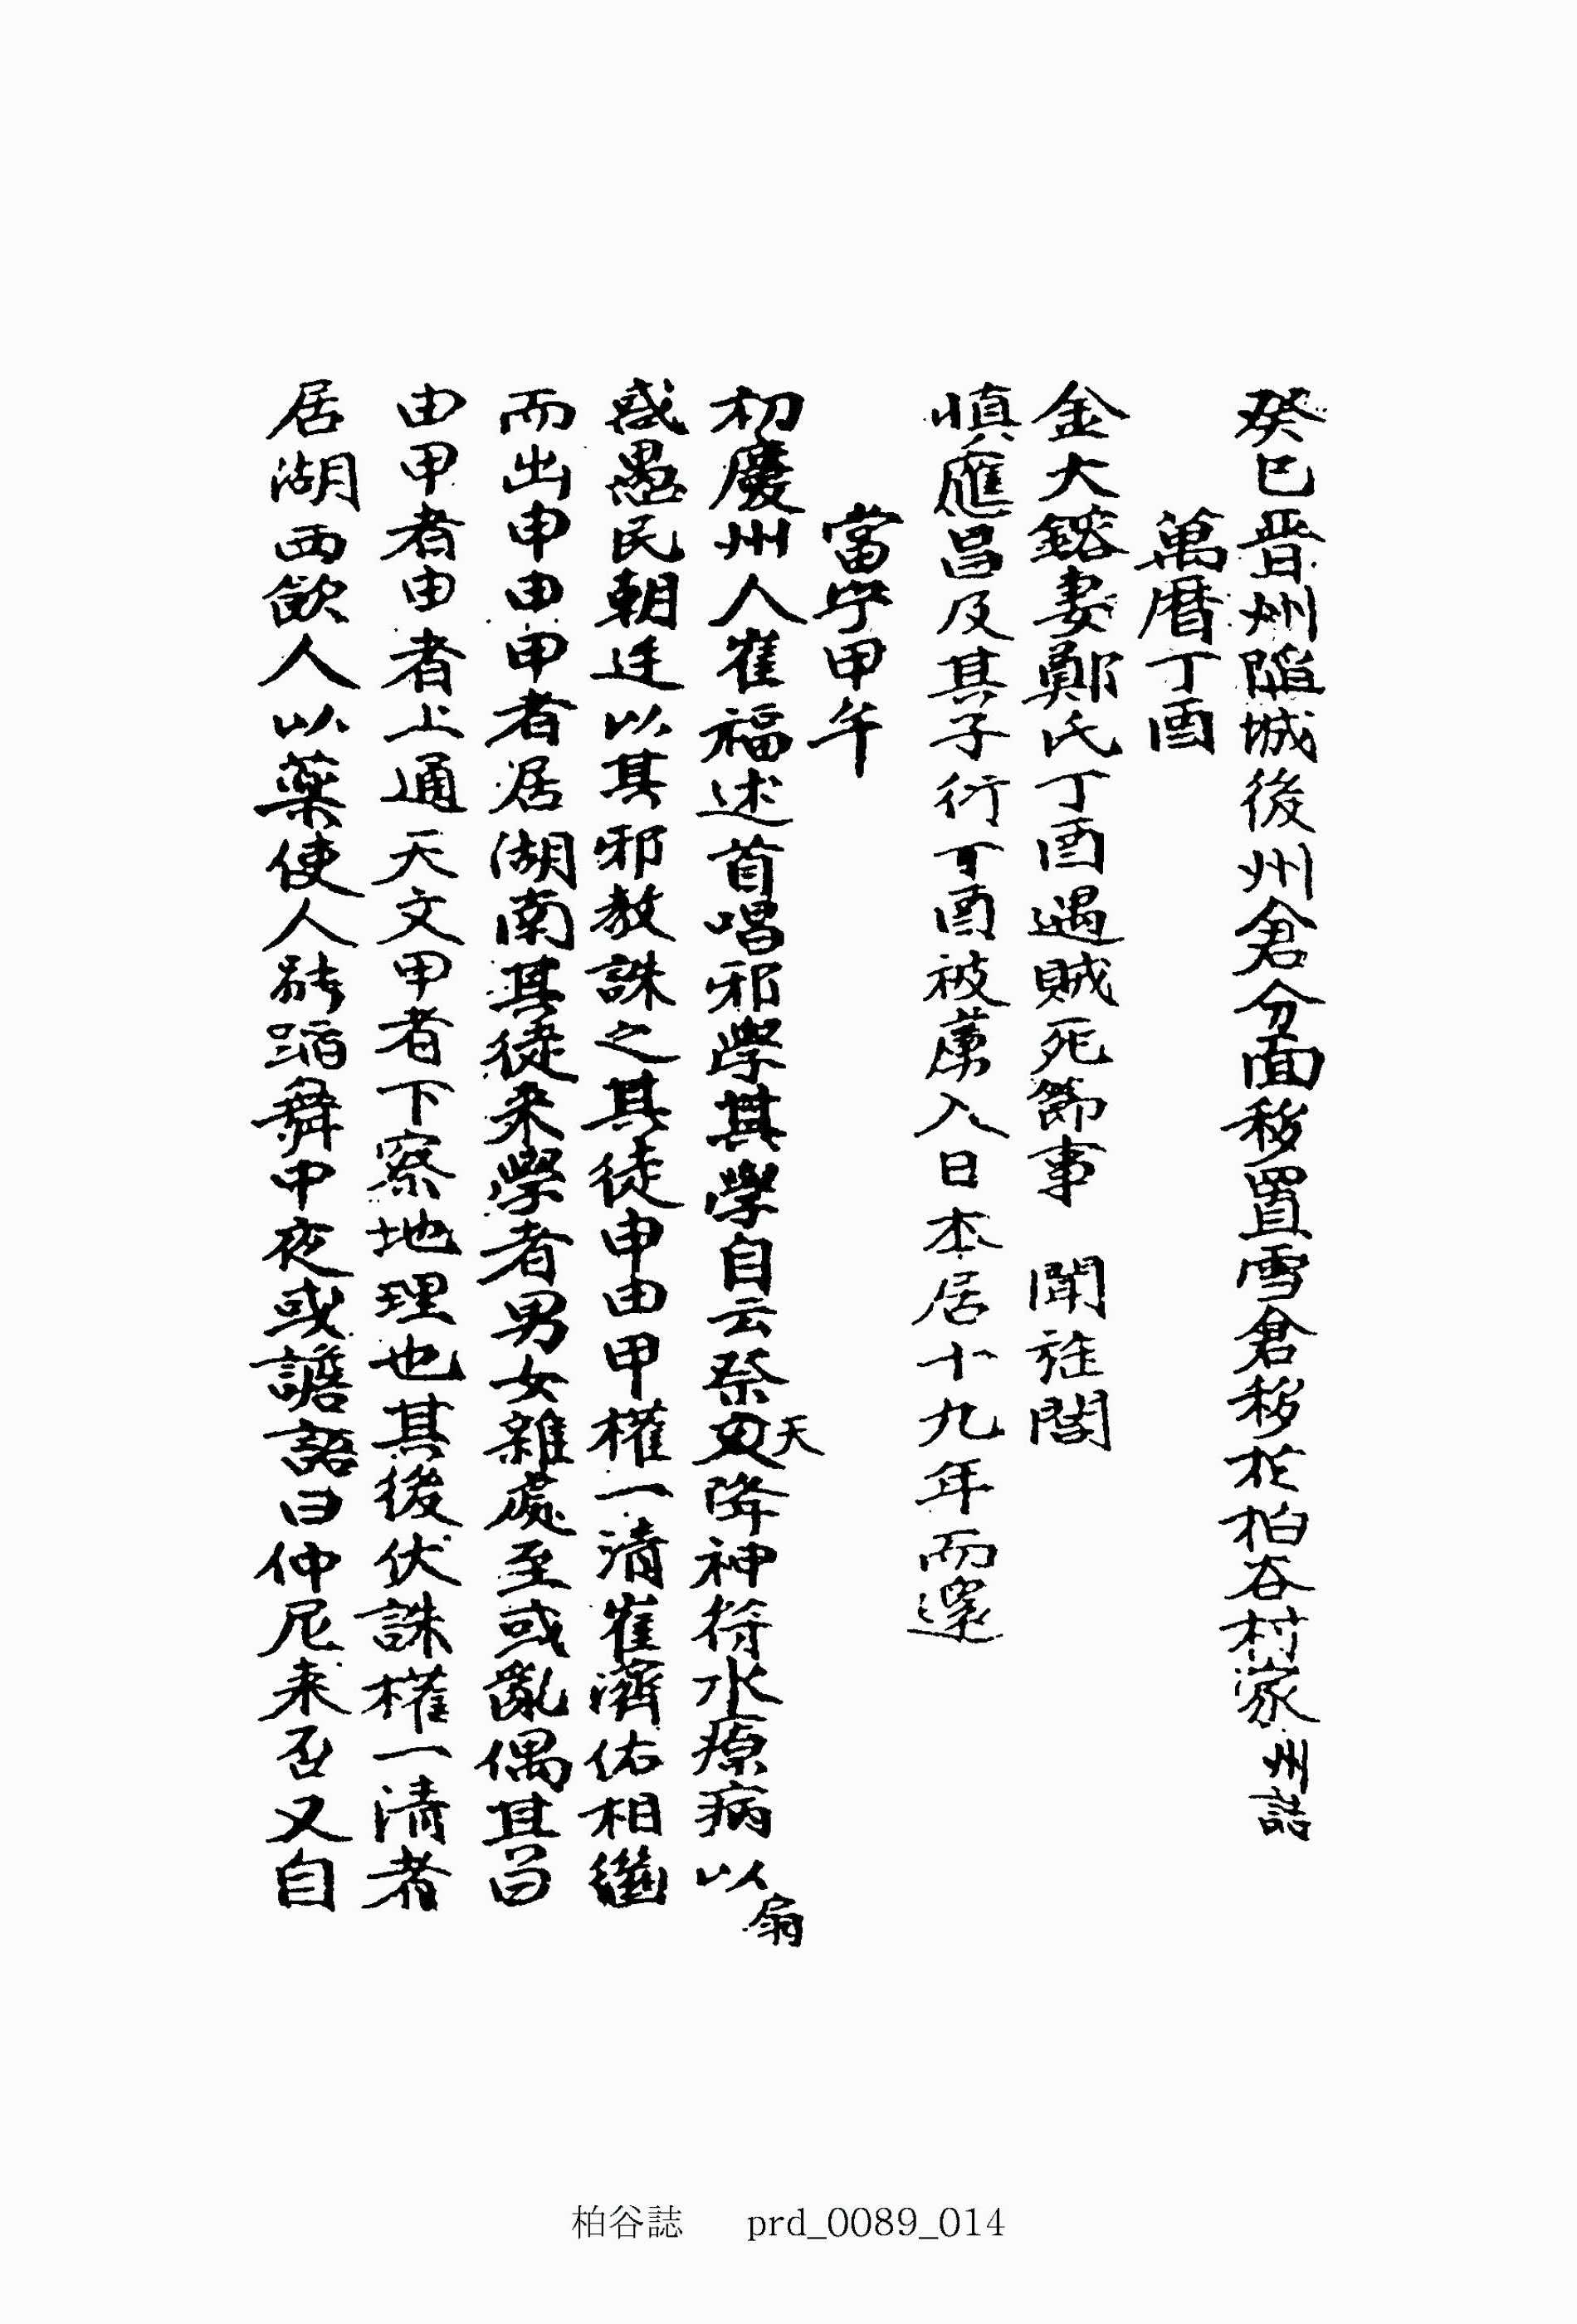 癸巳晋州陷城後州倉分面移置雪倉移於柏谷村家 州誌
萬曆丁酉
金大鎔妻鄭氏丁酉遇賊死節事 聞旌閭
愼應昌及其子衍丁酉被虜入日本居十九年而還
當宁甲午
初慶州人崔福述首唱邪學其學自云祭天降神符水療病以扇
惑愚民朝廷以其邪敎誅之其徒申由甲權一淸崔濟佑相繼
而出申由甲者居湖南其徒來學者男女雜處至或亂偶其曰
由甲者由者上通天文甲者下察地理也其後伏誅權一淸者
居湖西飮人以藥使人蹈舞中夜或譫語曰仲尼来否又自
柏谷誌 prd_0089_014